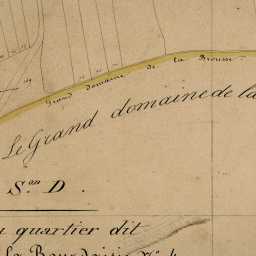 Grand domaine de la Brousse
Le Grand domaine de la
S.on D.
quartier dit
la